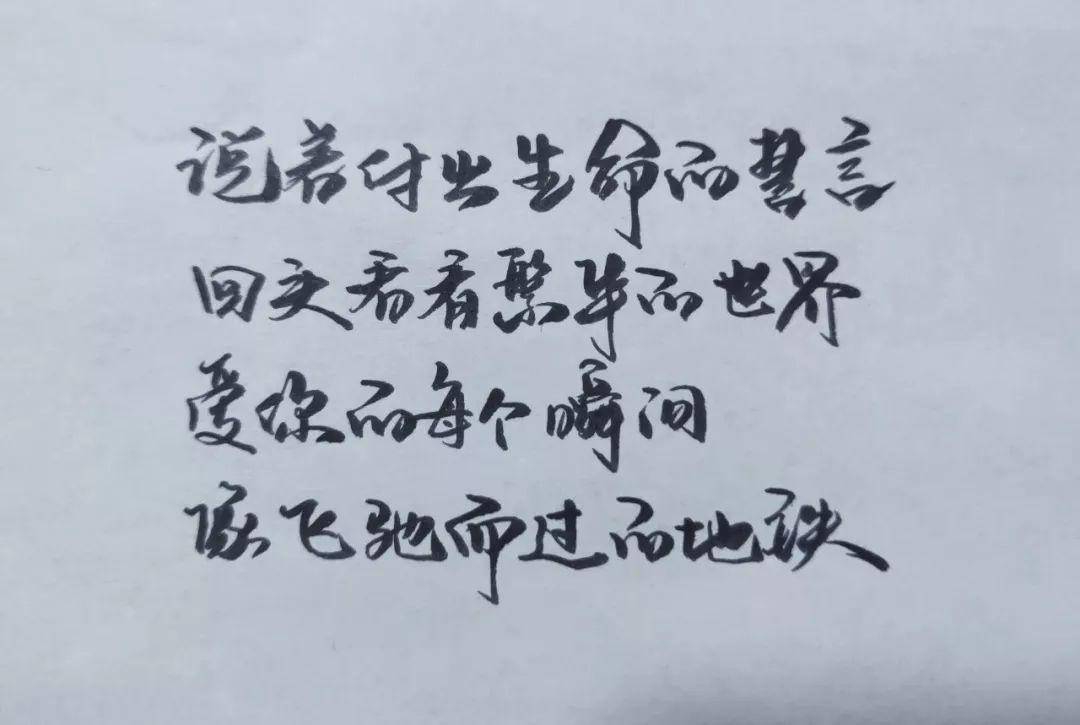 说着付出生命的誓言
回头看看繁华的世界
爱你的每个瞬间
像飞驰而过的地铁